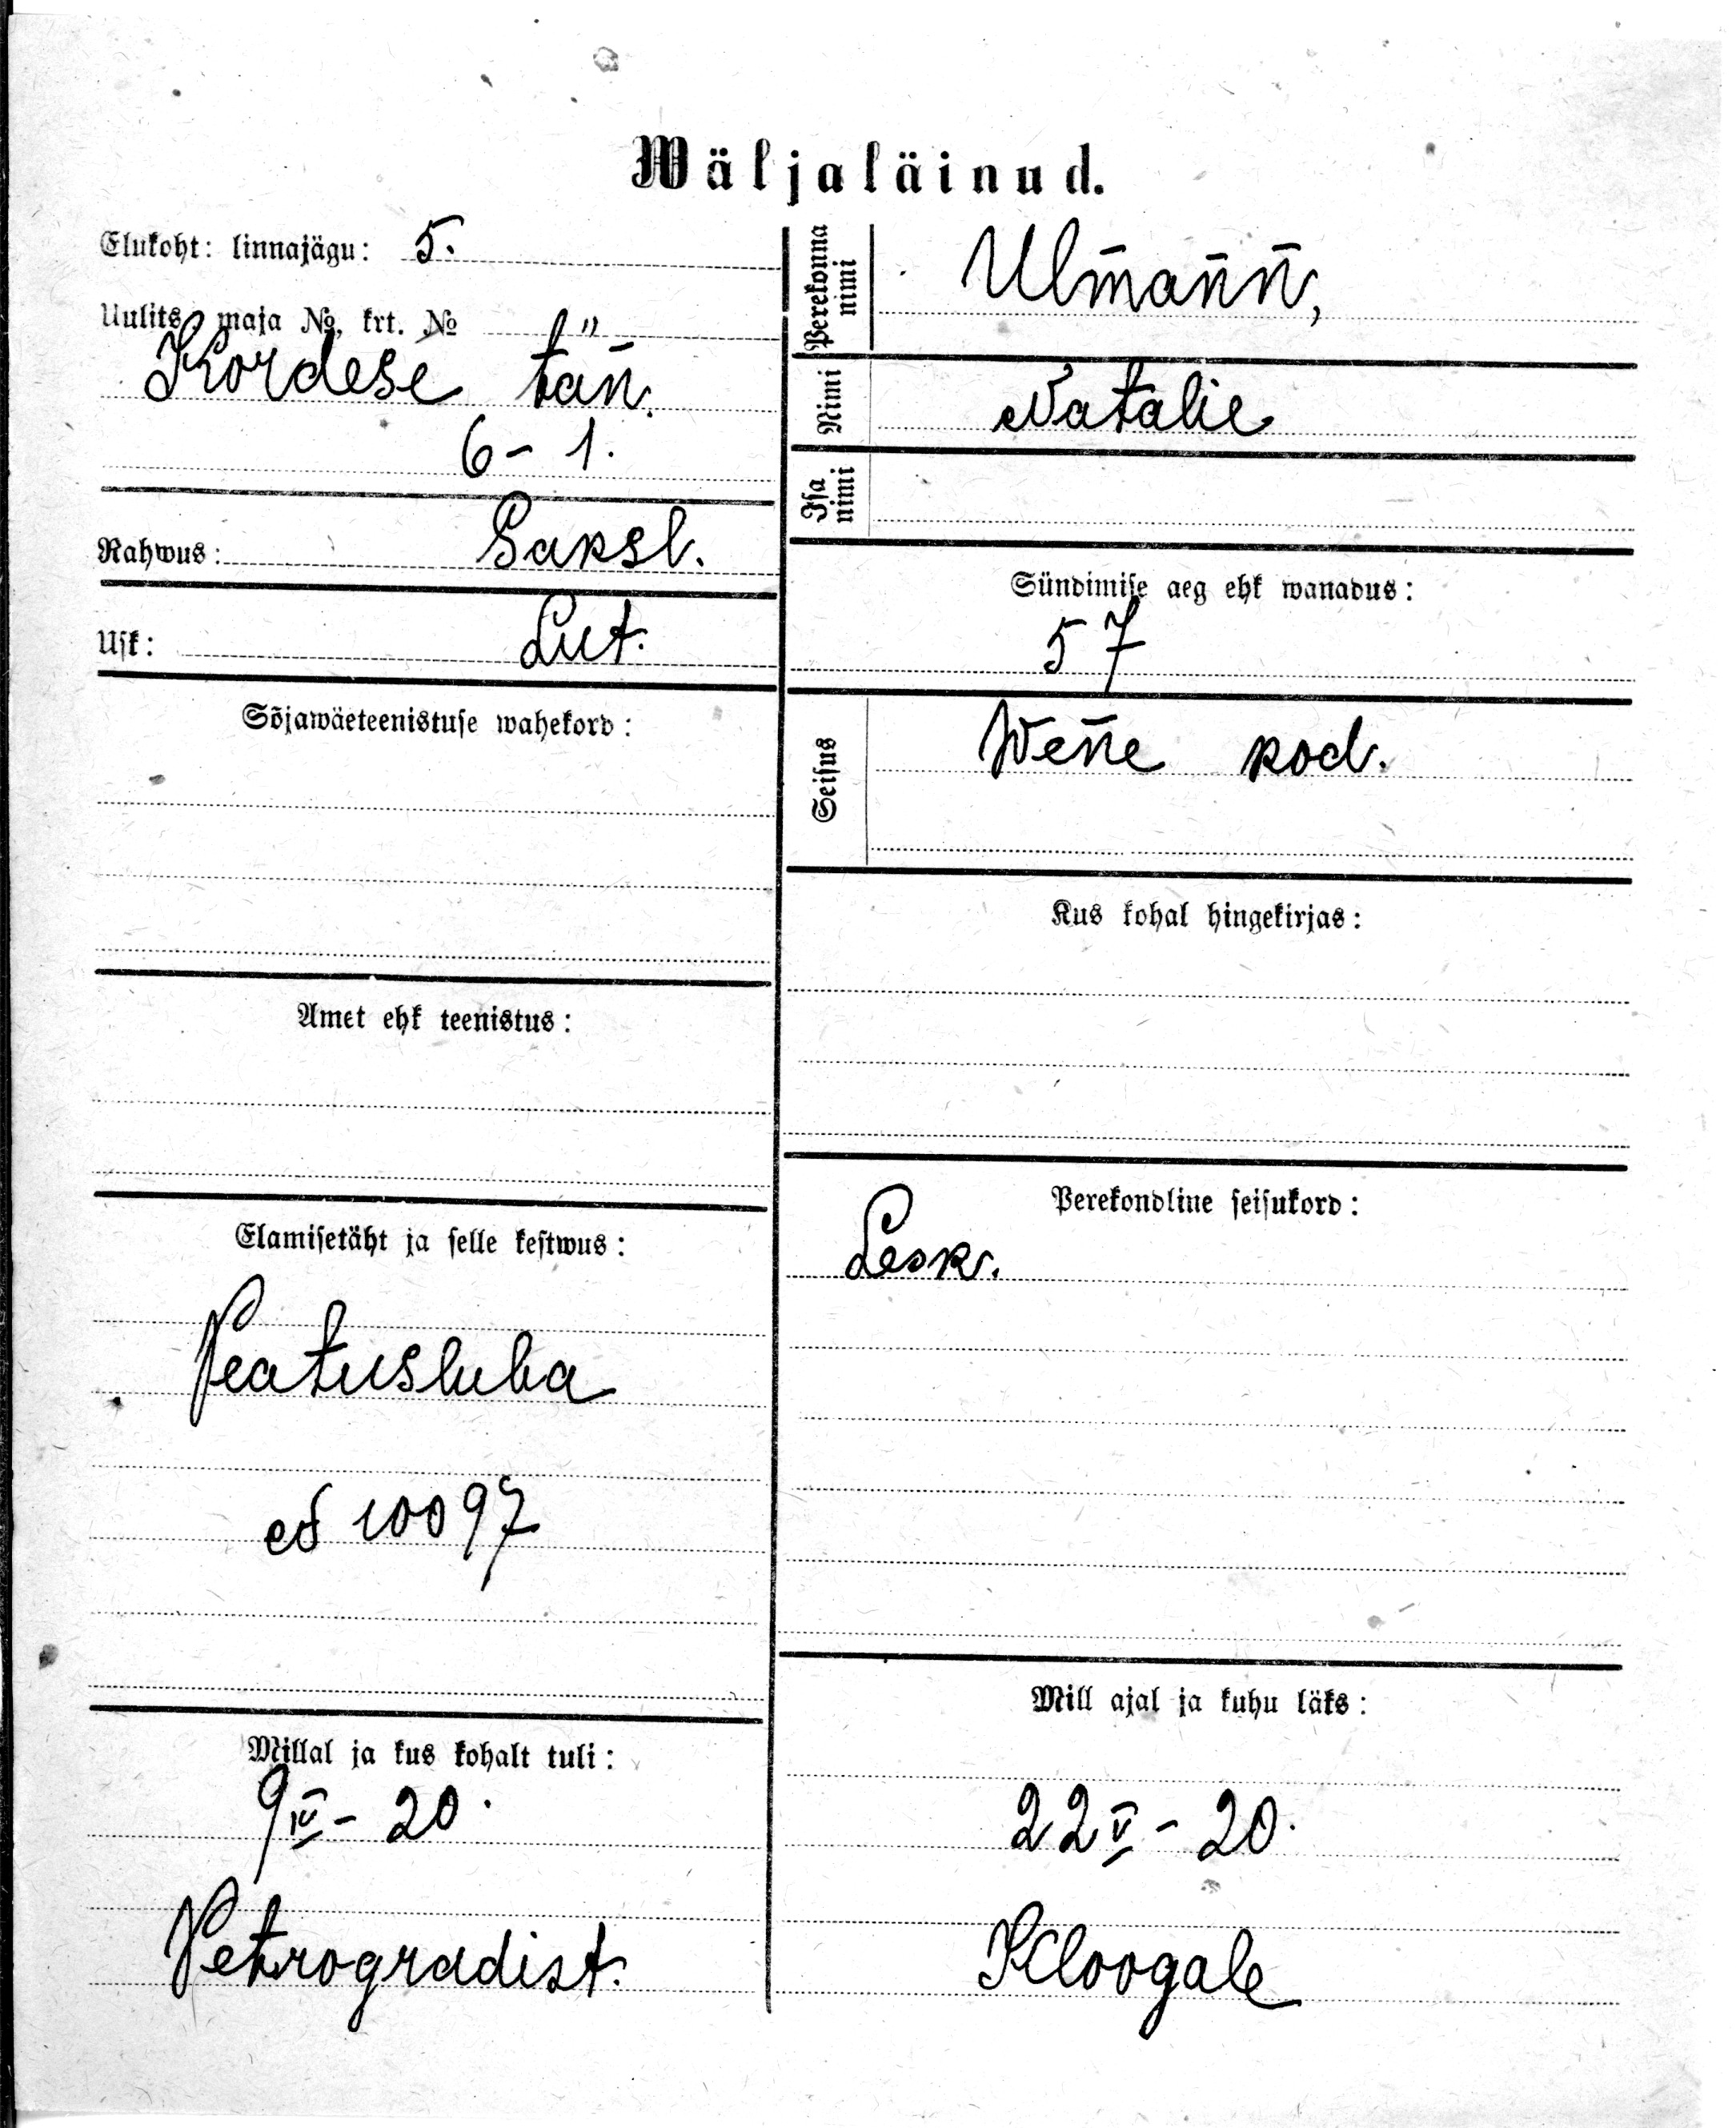 Wäljaläinud.
Elukoht: linnajägu: 5.
Uulits, maja №, krt. №
Kordese tän̄.
6 – 1.
Rahwus: Saksl.
Usk: Lut.
Sõjawäeteenistuse wahekord:
Amet ehk teenistus:
Elamisetäht ja selle kestwus:
Peatusluba
№ 10097
Millal ja kus kohalt tuli:
9 IV – 20.
Petrogradist.
Perekonna nimi
Ulm̄an̄n̄,
Nimi
Natalie
Isa nimi
Sündimise aeg ehk wanadus:
57
Seisus
Wen̄e kod.
Kus kohal hingekirjas:
Perekondline seisukord:
Lesk.
Mill ajal ja kuhu läks:
22 V – 20.
Kloogale